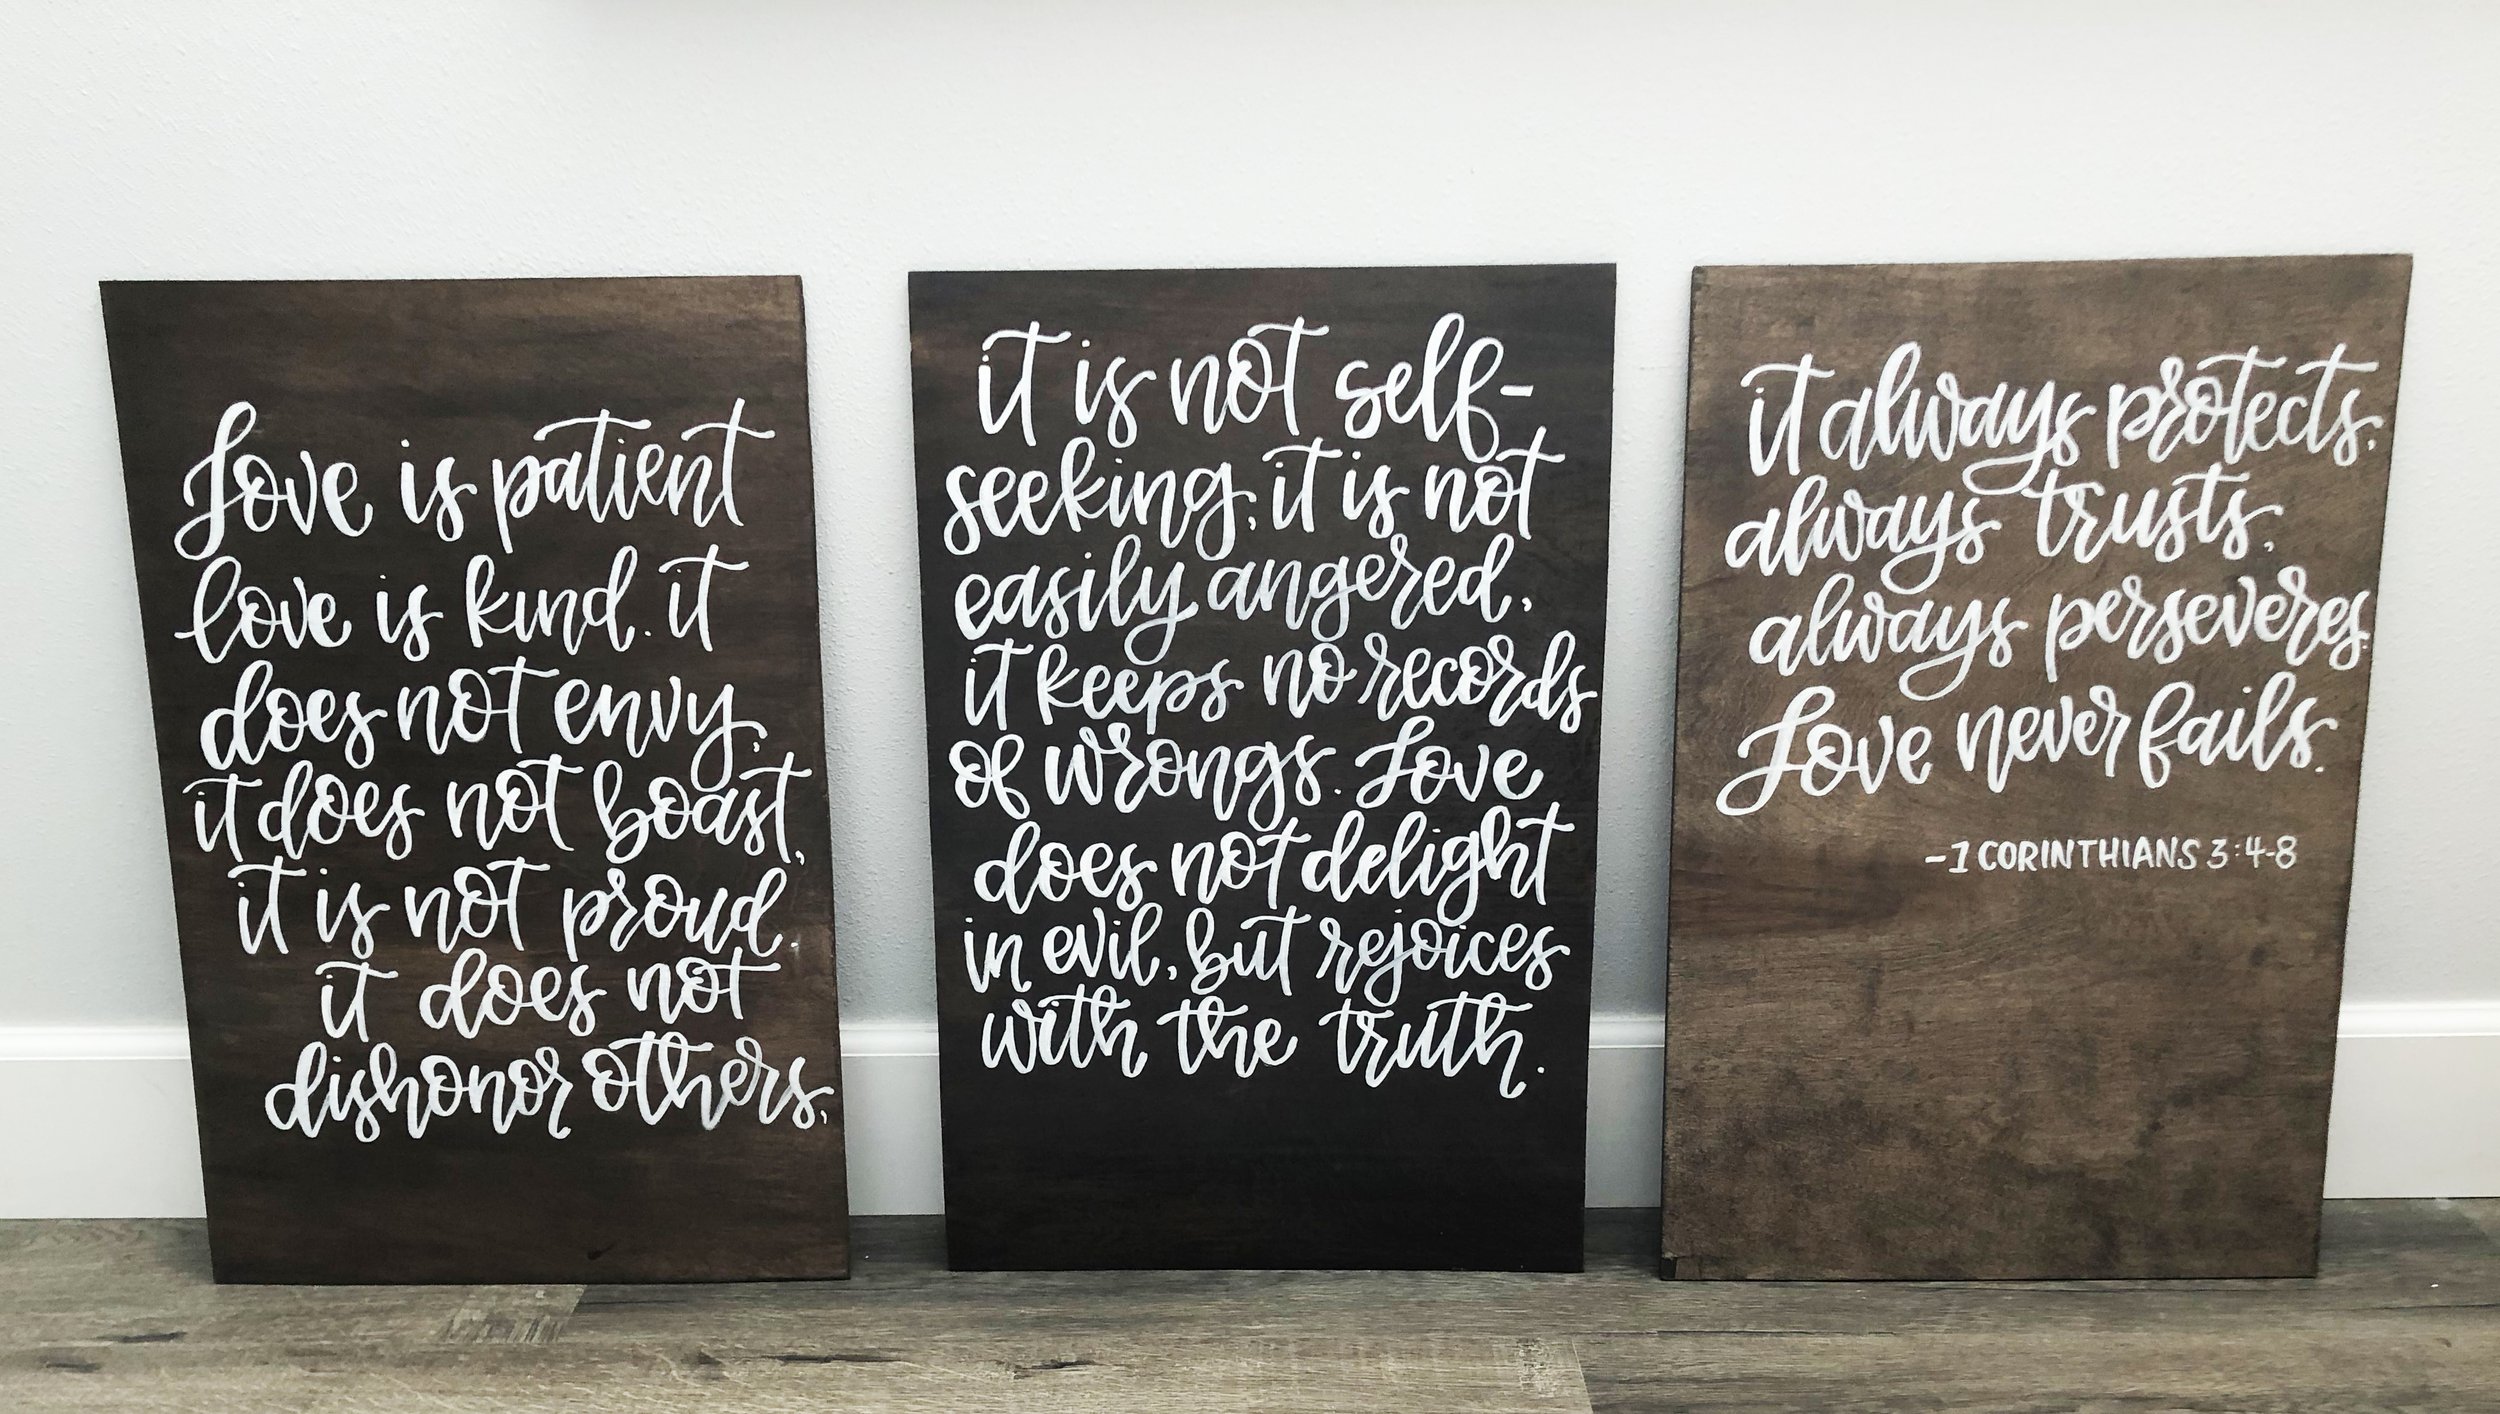 Love is patient
love is kind. it
does not envy,
it does not boast,
it is not proud.
it does not
dishonor others,
it is not self-
seeking, it is not
easily angered,
it keeps no records
of wrongs. Love
does not delight
in evil, but rejoices
with the truth.
it always protects,
always trusts,
always perseveres.
Love never fails.
-1 CORINTHIANS 3:4-8